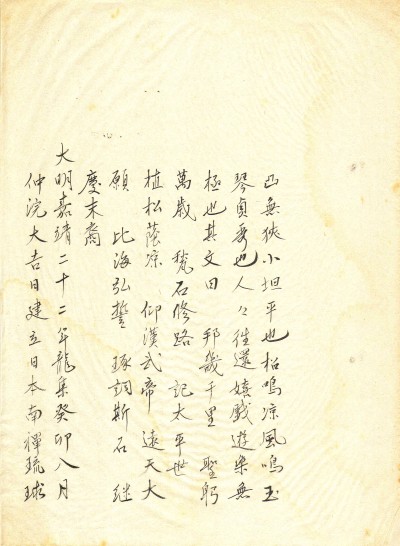 凸無狹小坦平也松鳴凉風鳴玉
琴貞秀也人々往還嬉戲遊楽無
極也其文曰　邦畿千里　聖躬
萬歳　甃石修路　記太平世
植松蔭凉　仰漢武帝　遠天大
願　比海弘誓　琢詞斯石　継
慶末裔
大明嘉靖二十二年龍集癸卯八月
仲浣大吉日建立日本南禅琉球